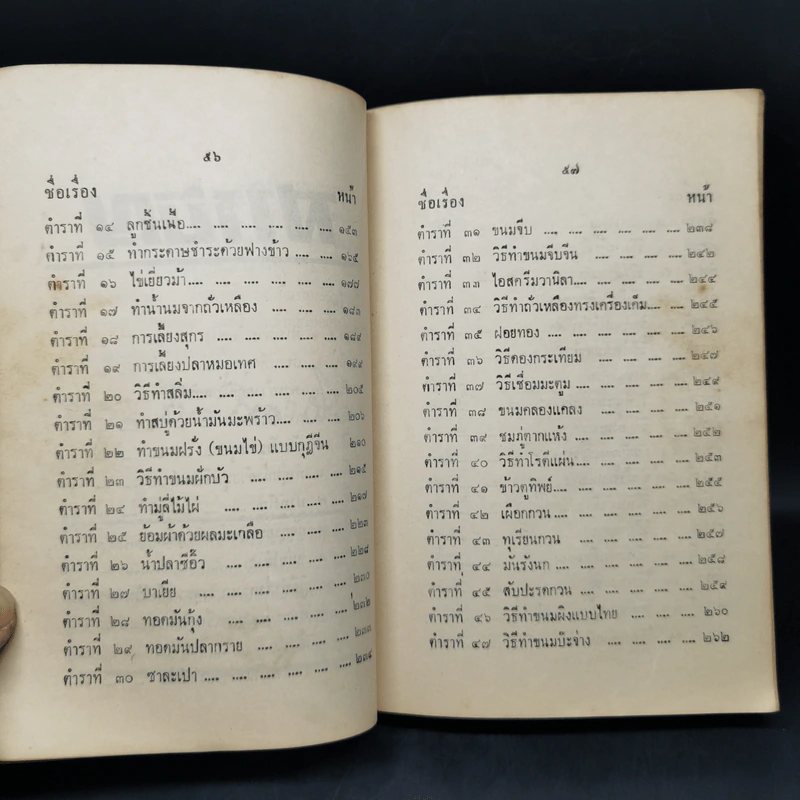 ๕๖
ชื่อเรื่อง หน้า
ตำราที่ ๑๔ ลูกชิ้นเนื้อ.... .... .... .... .... .... ๑๕๓
ตำราที่ ๑๕ ทำกระดาษชำระด้วยฟางข้าว .... .... ๑๖๕
ตำราที่ ๑๖ ไข่เยี่ยวม้า .... .... .... .... .... ๑๗๘
ตำราที่ ๑๗ ทำน้ำนมจากถั่วเหลือง .... .... .... ๑๘๓
ตำราที่ ๑๘ การเลี้ยงสุกร .... .... .... .... .... ๑๘๙
ตำราที่ ๑๙ การเลี้ยงปลาหมอเทศ .... .... .... ๑๙๙
ตำราที่ ๒๐ วิธีทำสลิ่ม.... .... .... .... .... .... ๒๐๕
ตำราที่ ๒๑ ทำสบู่ด้วยน้ำมันมะพร้าว.... .... .... ๒๐๖
ตำราที่ ๒๒ ทำขนมฝรั่ง (ขนมไข่) แบบกุฎีจีน ๒๑๐
ตำราที่ ๒๓ วิธีทำขนมฝักบัว .... .... .... .... ๒๑๕
ตำราที่ ๒๔ ทำมู่ลี่ไม้ไผ่ .... .... .... .... .... ๒๑๗
ตำราที่ ๒๕ ย้อมผ้าด้วยผลมะเกลือ .... .... .... ๒๒๓
ตำราที่ ๒๖ น้ำปลาซีอิ๊ว .... .... .... .... .... ๒๒๘
ตำราที่ ๒๗ บาเยีย .... .... .... .... .... .... ๒๓๐
ตำราที่ ๒๘ ทอดมันกุ้ง .... .... .... .... .... ๒๓๒
ตำราที่ ๒๙ ทอดมันปลากราย .... .... .... .... ๒๓๓
ตำราที่ ๓๐ ซาละเปา .... .... .... .... .... .... ๒๓๔
๕๗
ชื่อเรื่อง หน้า
ตำราที่ ๓๑ ขนมจีบ .... .... .... .... .... .... ๒๓๘
ตำราที่ ๓๒ วิธีทำขนมจีบจีน .... .... .... .... ๒๔๒
ตำราที่ ๓๓ ไอสครีมวานิลา .... .... .... .... ๒๔๔
ตำราที่ ๓๔ วิธีทำถั่วเหลืองทรงเครื่องเค็ม.... .... ๒๔๕
ตำราที่ ๓๕ ฝอยทอง .... .... .... .... .... ๒๔๖
ตำราที่ ๓๖ วิธีดองกระเทียม .... .... .... .... ๒๔๗
ตำราที่ ๓๗ วิธีเชื่อมมะตูม .... .... .... .... ๒๔๙
ตำราที่ ๓๘ ขนมคลองแคลง .... .... .... .... ๒๕๑
ตำราที่ ๓๙ ชมภู่ตากแห้ง .... .... .... .... ๒๕๒
ตำราที่ ๔๐ วิธีทำโรตีแผ่น.... .... .... .... .... ๒๕๓
ตำราที่ ๔๑ ข้าวตูทิพย์.... .... .... .... .... ๒๕๔
ตำราที่ ๔๒ เผือกกวน .... .... .... .... .... ๒๕๖
ตำราที่ ๔๓ ทุเรียนกวน .... .... .... .... .... ๒๕๗
ตำราที่ ๔๔ มันรังนก .... .... .... .... .... ๒๕๘
ตำราที่ ๔๕ สับปะรดกวน .... .... .... .... .... ๒๕๙
ตำราที่ ๔๖ วิธีทำขนมผิงแบบไทย .... .... .... ๒๖๐
ตำราที่ ๔๗ วิธีทำขนมบ๊ะจ่าง .... .... .... .... ๒๖๒